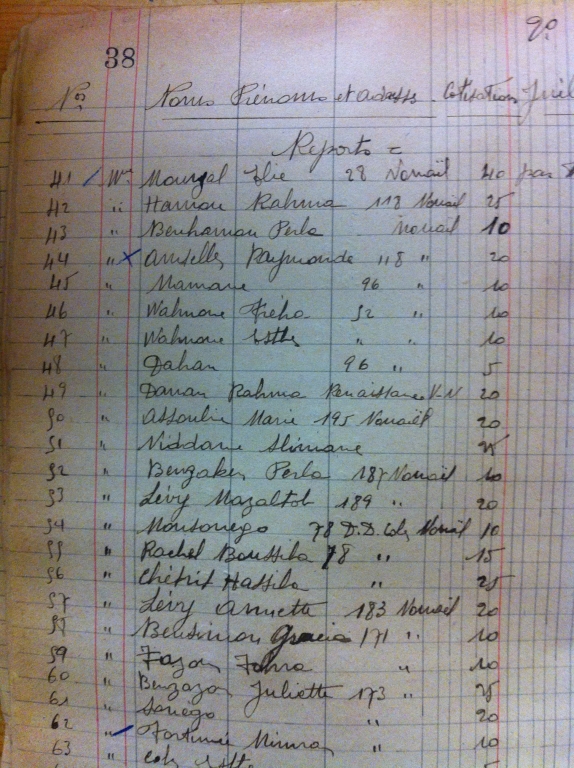 90
38
Nos Noms Prénoms et adresses. Cotisations Juil
Reports =
41 Mme Mouyal Elie 28 Nouaïl 40 par
42 " Hamou Rahma 118 Nouail 25
43 " Benhamou Perla Nouail 10
44 " x Amselley Raymonde 118 " 20
45 " Mamane 96 " 10
46 " Wahnone Fréha 52 " 10
47 " Wahnone Esther " " 10
48 " Dahan 96 " 5
49 " Danan Rahma Renaissance V-N 20
50 " Assouline Marie 195 Nouaïl 20
51 " Niddane Slimane 25
52 " Benzaken Perla 187 Nouaïl 10
53 " Lévy Mazaltob 189 " 20
54 " Monsonego 78 D.D. Nouaïl 10
55 " Rachel Boussila 78 " 15
56 " Chétrit Hassiba " 25
57 " Lévy Annette 183 Nouaïl 20
58 " Bensimon Gracia 171 " 10
59 " Fazon Fahra " 10
60 " Benzazon Juliette 173 " 25
61 " Sonego " 20
62 " Fortunée Mimran " 10
63 "